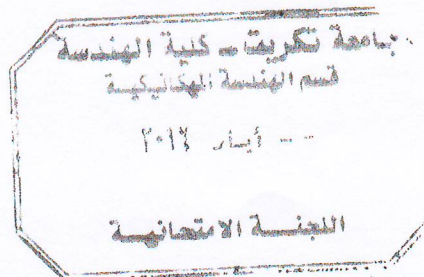 جامعة تكريت - كلية الهندسة
قسم الهندسة الميكانيكية
-- أيار ٢٠١٤
اللجنــة الامتحانيــة